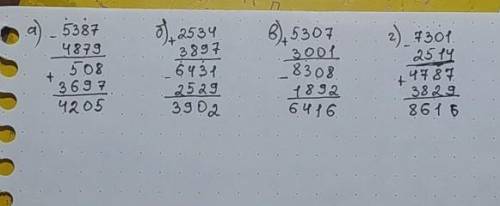 а) - 5387 б) + 2534 в) + 5307 г) - 7301
4879 3897 3001 2514
+ 508 - 6431 - 8308 + 4787
3697 2529 1892 3829
4205 3902 6416 8616